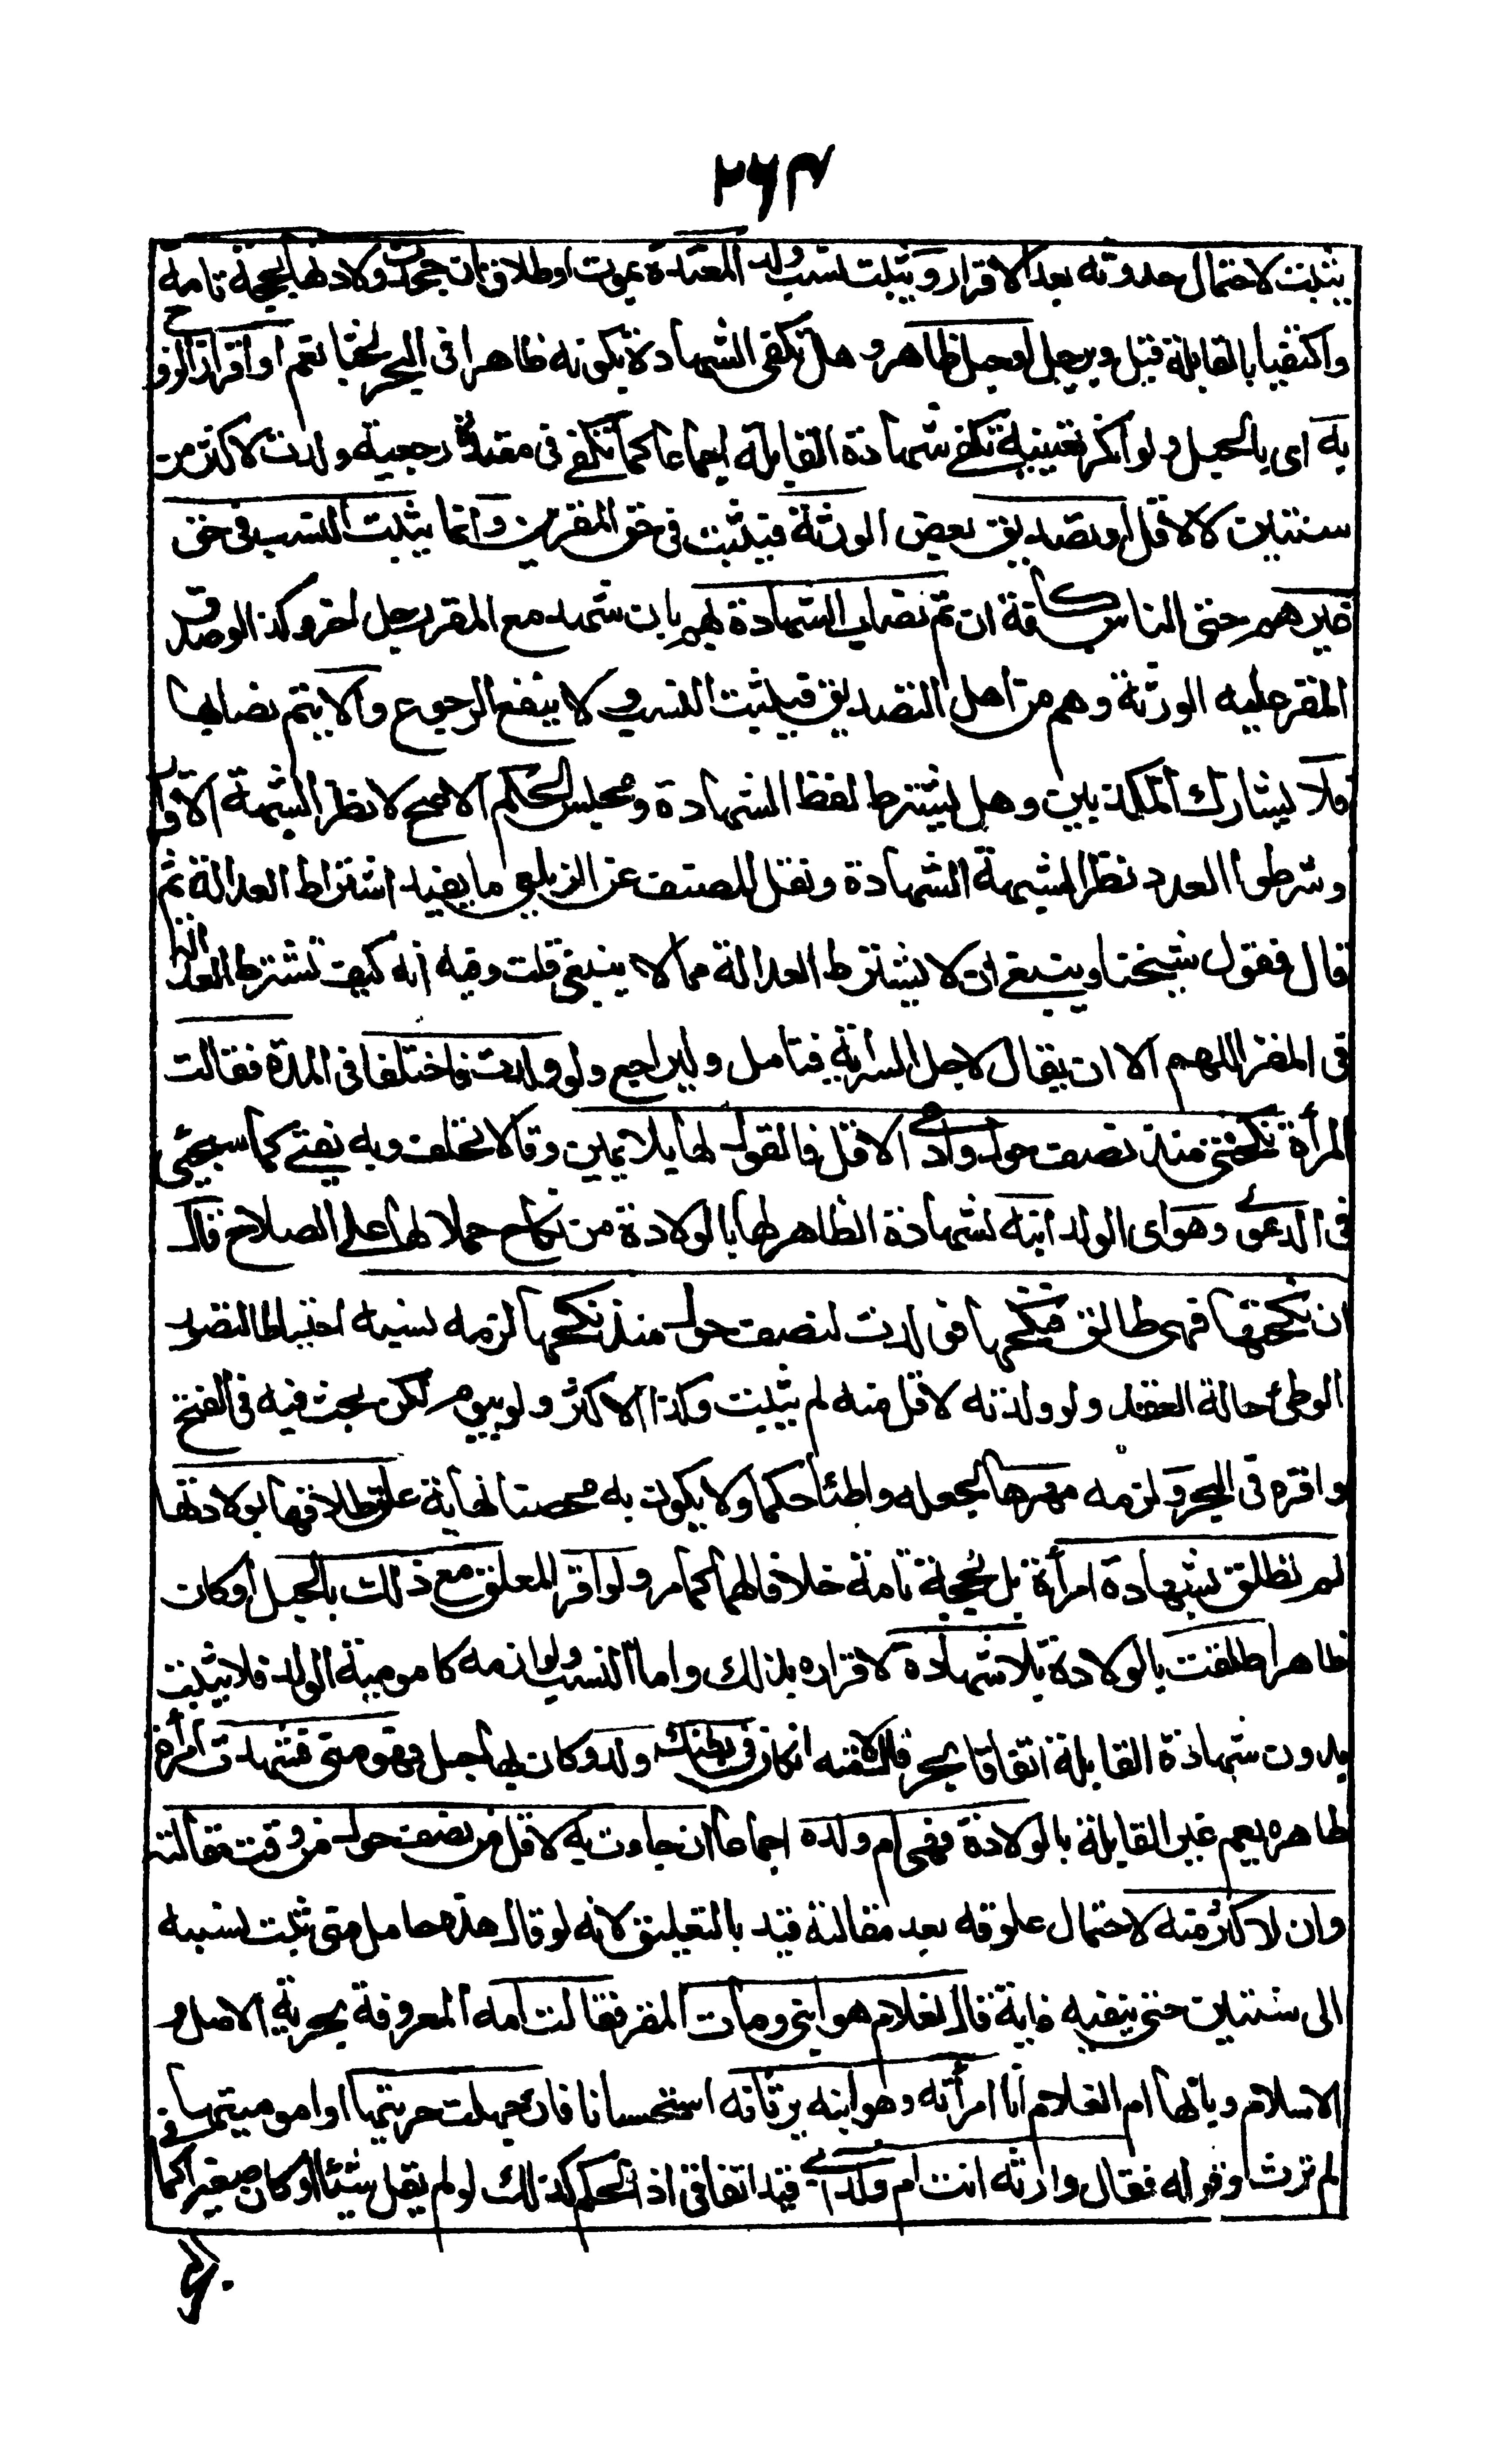 ٢٦٣
يثبت لاحتمال حدوثه بعد الاقرار ويثبت نسب ولد المعتدة بموت او طلاق ان جحدت ولادتها بحجة تامة
واكتفيا بالقابلة قيل وبرجل او حبل ظاهر وهل تكفى الشهادة بكونه ظاهرا فى البحر بحثا نعم او اقرار الزوج
به اى بالحبل ولو انكر تعيينه تكفى شهادة القابلة اجماعا كما تكفى فى معتدة رجعية ولدت لاكثر من
سنتين لا لاقل او تصديق بعض الورثة فيثبت فى حق المقرين وانما يثبت النسب فى حق
غيرهم حتى الناس كافة ان تم نصاب الشهادة بهم بان شهد مع المقر رجل اخر وكذا لو صدق
المقر عليه الورثة وهم من اهل التصديق فيثبت النسب ولا ينفع الرجوع والا يتم نصابها
فلا يشارك المكذبين وهل يشترط لفظ الشهادة ومجلس الحكم الاصح لا نظرا لشبهة الاقرار
وشرطوا العدد نظرا لشبهة الشهادة ونقل المصنف عن الزيلعى ما يفيد اشتراط العدالة ثم
قال فقول شيخنا وينبغى ان لا يشترط العدالة مما لا ينبغى قلت وفيه انه كيف تشترط العدالة
فى المقر اللهم الا ان يقال لاجل السراية فتامل وليراجع ولو ولدت فاختلفا فى المدة فقالت
المرأة نكحتنى منذ نصف حول وادعى الاقل فالقول لها بلا يمين وقالا تحلف وبه يفتى كما سيجئى
فى الدعوى وهو اى الولد ابنه لشهادة الظاهر لها بالولادة من نكاح حملا لها على الصلاح قال
ان نكحتها فهى طالق فنكحها فولدت لنصف حول منذ نكحها لزمه نسبه احتياطا لتصور
الوطئ حالة العقد ولو ولدته لاقل منه لم يثبت وكذا الاكثر ولو بيوم لكن بحث فيه فى الفتح
واقره فى البحر ولزمه مهرها بجعله واطئا حكما ولا يكون به محصنا نهاية علق طلاقها بولادتها
لم تطلق بشهادة امرأة بل بحجة تامة خلافا لهما كما مر ولو اقر المعلق مع ذلك بالحبل او كان
ظاهرا طلقت بالولادة بلا شهادة لاقراره بذلك واما النسب ولوازمه كامومية الولد فلا يثبت
بدون شهادة القابلة اتفاقا بحر قال لامته ان كان فى بطنك ولد او كان لها حبل فهو منى فشهدت امرأة
ظاهره يعم غير القابلة بالولادة فهى ام ولده اجماعا ان جاءت به لاقل من نصف حول من وقت مقالته
وان لاكثر منه لا لاحتمال علوقه بعد مقالته قيد بالتعليق لانه لو قال هذه حامل منى ثبت نسبه
الى سنتين حتى ينفيه غاية قال لغلام هو ابنى ومات المقر فقالت امه المعروفة بحرية الاصل و
الاسلام وبانها ام الغلام انا امرأته وهو ابنه يرثانه استحسانا فان جهلت حريتها او اموميتها
لم ترث وقوله فقال وارثه انت ام ولد ابى قيد اتفاقى اذ الحكم كذلك لو لم يقل شيئا او كان صغيرا كما